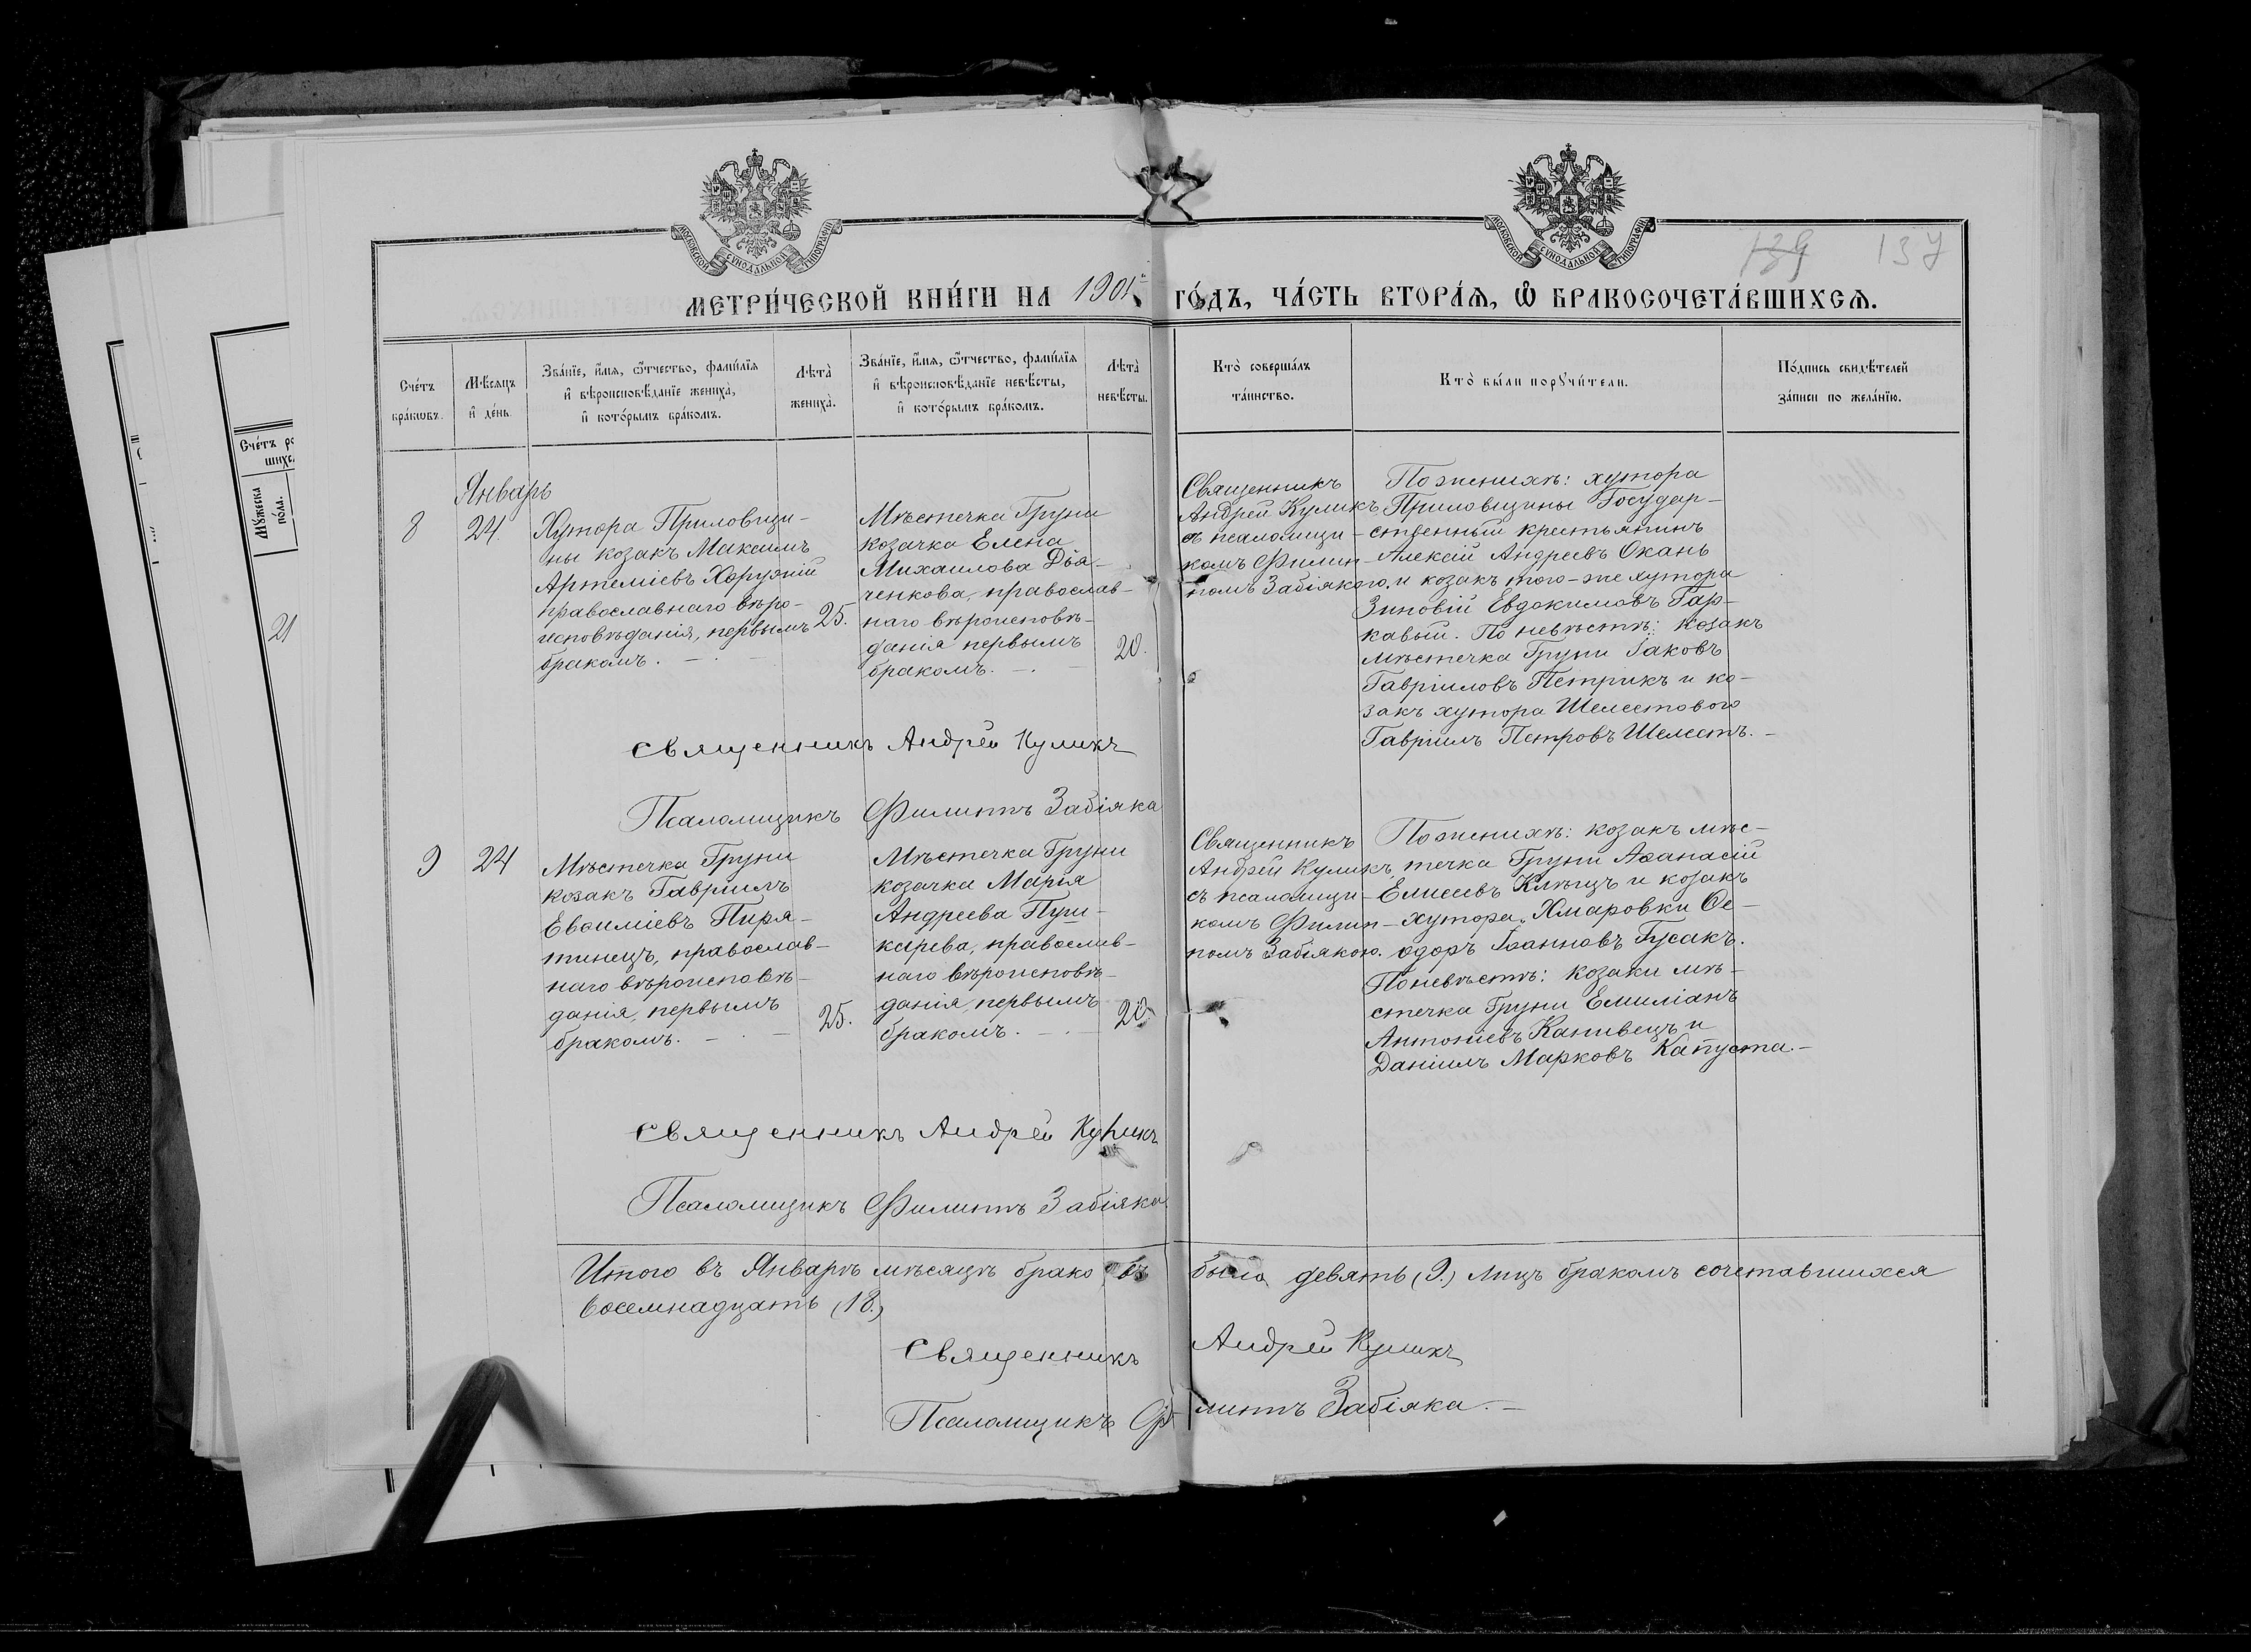 МОСКОВСКОЙ СѴНОДАЛЬНОЙ ТИПОГРАФІИ
МОСКОВСКОЙ СѴНОДАЛЬНОЙ ТИПОГРАФІИ
139 137
МЕТРИ́ЧЕСКОЙ КНИ́ГИ НА 1901 ГО́ДЪ, ЧА́СТЬ ВТОРА́Ѧ, Ѽ БРАКОСОЧЕТА́ВШИХСѦ.
Сче́тъ
бра́кѡвъ.
Мѣ́сѧцъ
и҆ де́нь.
Зва́нїе, и҆́мѧ, ѻ҆́тчество, фами́лїѧ
и҆ вѣроисповѣ́данїе жениха̀,
и҆ кото́рымъ бра́комъ.
Лѣта̀
жениха̀.
Зва́нїе, и҆́мѧ, ѻ҆́тчество, фами́лїѧ
и҆ вѣроисповѣ́данїе невѣ́сты,
и҆ кото́рымъ бра́комъ.
Лѣта̀
невѣ́сты.
Кто̀ соверша́лъ
та́инство.
Кто̀ бы́ли порꙋчи́тели.
По́дпись свидѣ́телей
за́писи по жела́нїю.
Сче́тъ
Мꙋ́жеска
по́ла.
21
Январь
8
24.
ХутораПриловщи-
ны козакъ Максимъ
Артеміевъ Харужій
православнаго вѣро-
исповѣданія, первымъ
бракомъ.
25.
Мѣстечка Груни
козачка Елена
Михаилова Дья-
ченкова, православ-
наго вѣроисповѣ-
данія первымъ
бракомъ.
20.
Священникъ
Андрей Куликъ
съ псаломщи-
комъ Филип-
помъ Забіякою.
По женихѣ: хутора
Приловщины Государ-
ственный крестьянинъ
Алексій Андреевъ Окань
и козакъ того-же хутора
Зиновій Евдокимовъ Гар-
кавый. По невѣстѣ: козакъ
мѣстечка Груни Іаковъ
Гавріиловъ Петрикъ и ко-
закъ хутора Шелестового
Гавріилъ Петровъ Шелестъ.
Священникъ Андрей Куликъ
Псаломщикъ Филиппъ Забіяка
9
24
Мѣстечка Груни
козакъ Гавріилъ
Евѳиміевъ Пиря-
тинецъ, православ-
наго вѣроисповѣ-
данія, первымъ
бракомъ.
25.
Мѣстечка Груни
козачка Марія
Андреева Пуш-
карева, православ-
наго вѣроисповѣ-
данія, первымъ
бракомъ.
20
Священникъ
Андрей Куликъ
съ псаломщи-
комъ Филип-
помъ Забіякою.
По женихѣ: козакъ мѣс-
течка Груни Аѳанасій
Елисеевъ Клѣщъ и козакъ
хутора Хмаровки Ѳе-
одоръ Іоанновъ Гусакъ.
По невѣстѣ: козаки мѣ-
стечка Груни Емиліанъ
Антоніевъ Канивецъ и
Даніилъ Марковъ Капуста.
Священникъ Андрей Куликъ
Псаломщикъ Филиппъ Забіяка
Итого въ Январѣ мѣсяцѣ браковъ было девять (9.) лицъ бракомъ сочетавшихся
восемнадцать (18.)
Священникъ Андрей Куликъ
Псаломщикъ Филиппъ Забіяка.